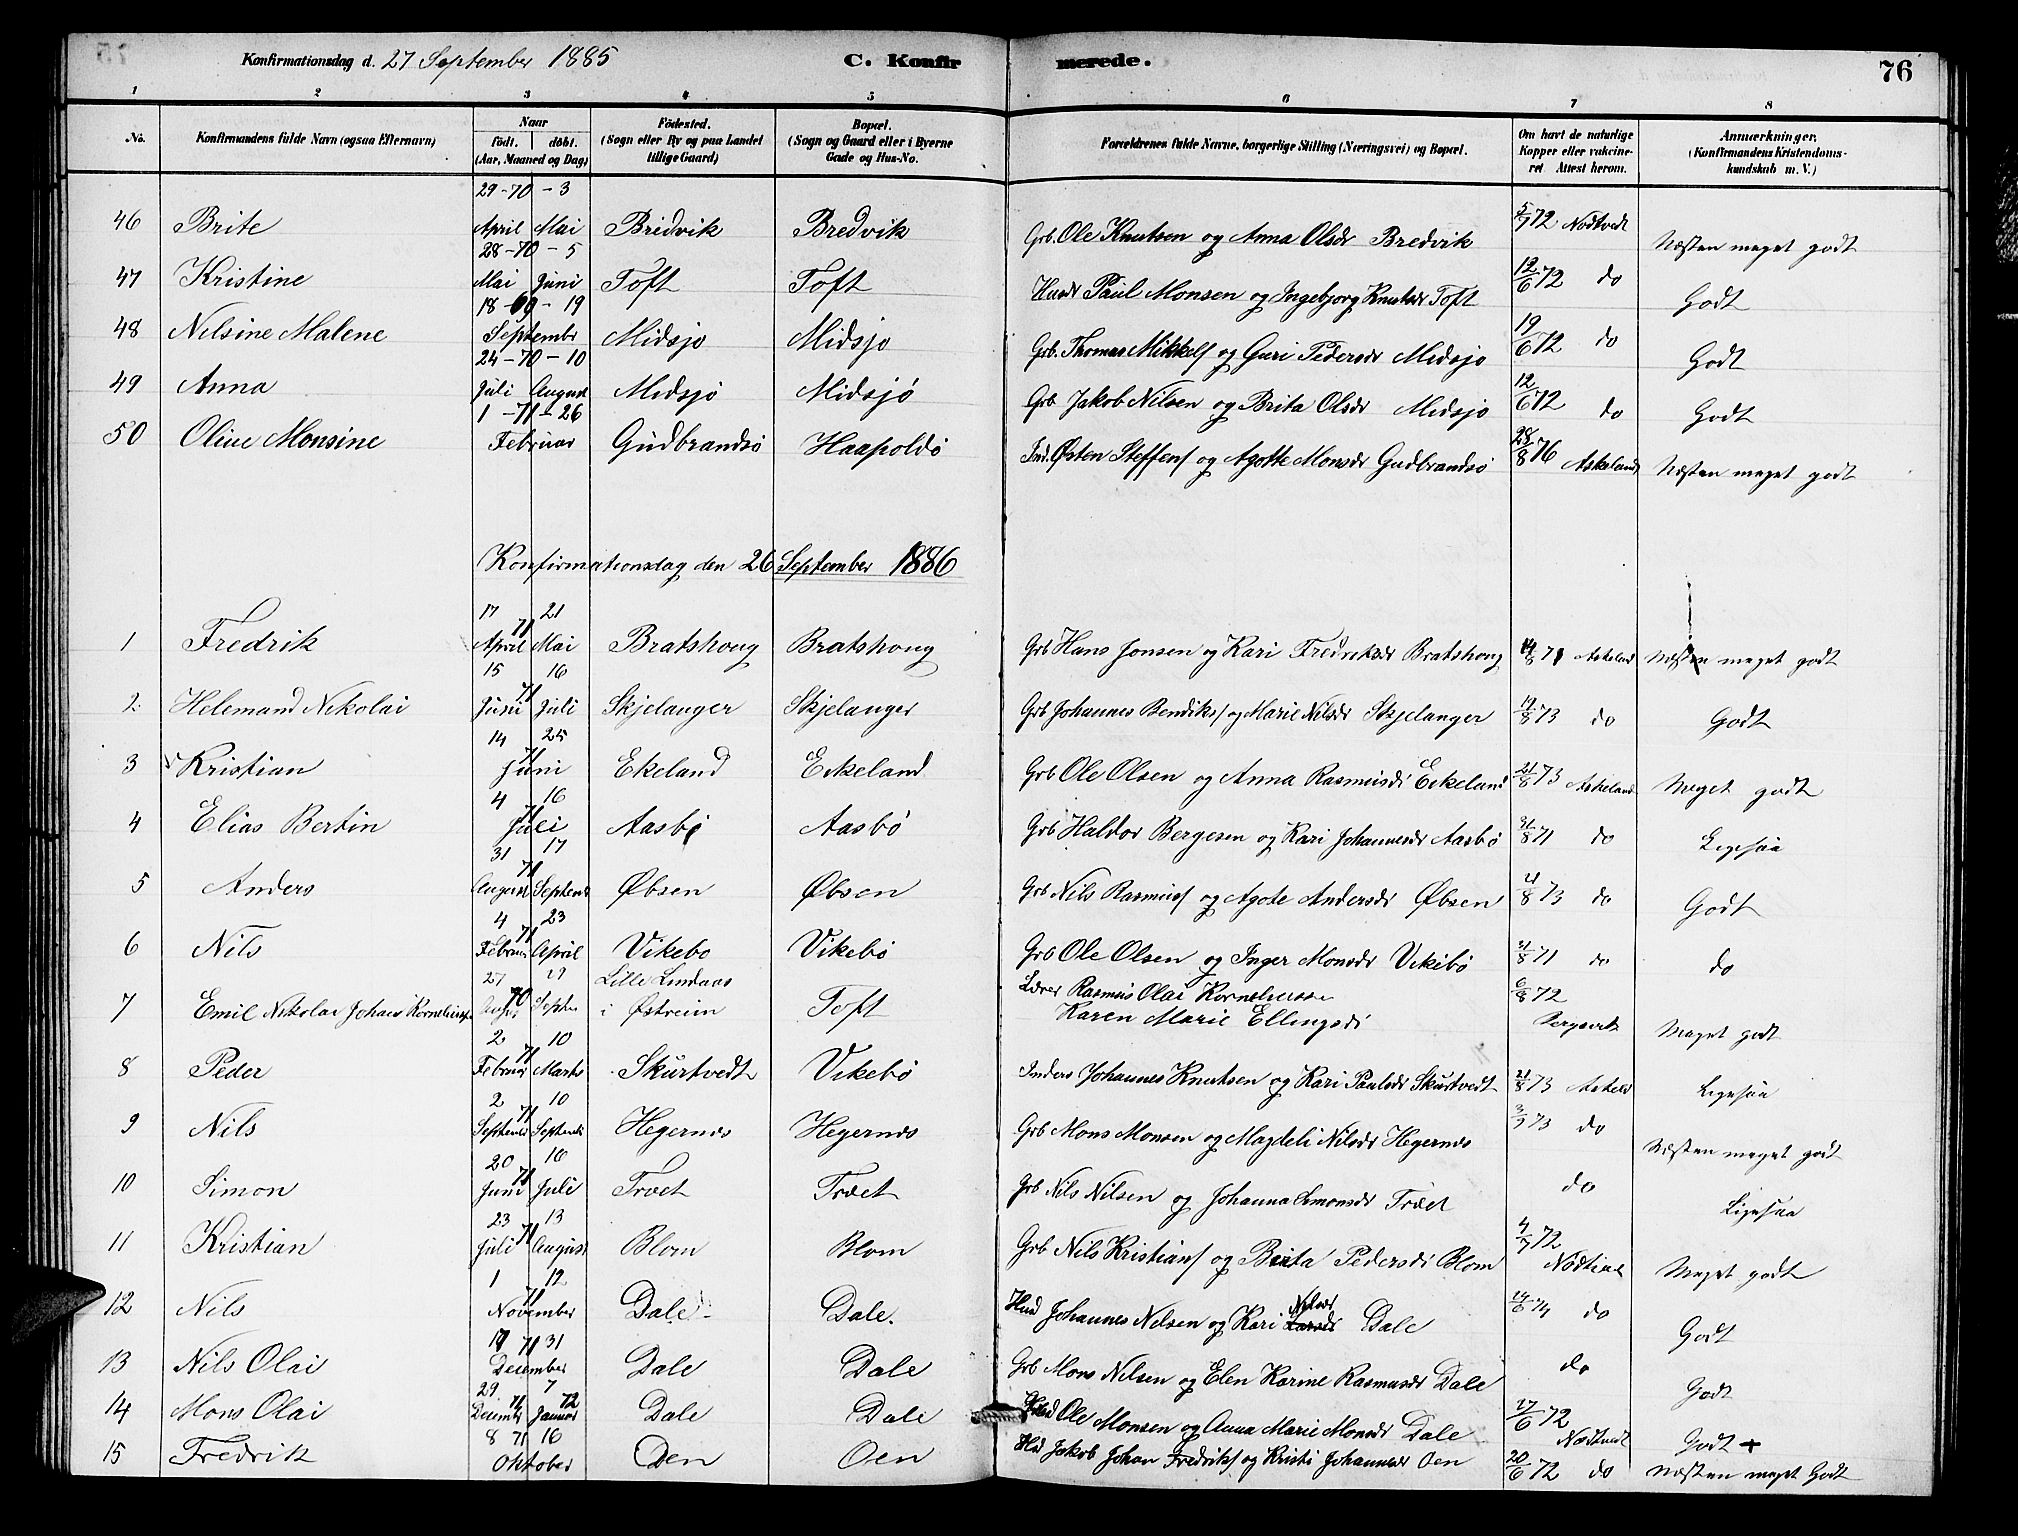 Konfirmationsdag d. 27 September 1885 C. Konfirmerede. 76
1 2 3 4 5 6 7 8
No. Konfirmandens fulde Navn (ogsaa Efternavn) Naar födt. döbt. (Aar, Maaned og Dag) Födested. (Sogn eller By og paa Landet tillige Gaard) Bopæl. (Sogn og Gaard eller i Byerne Gade og Hus-No. Forældrenes fulde Navne, borgerlige Stilling (Næringsvei) og Bopæl. Om havt de naturlige Kopper eller vakcineret Attest herom. Anmærkninger, (Konfirmandens Kristendomskundskab m. V.)
29-70-3
46 Brite April Mai Bredvik Bredvik Grb. Ole Knutsen og Anna Olsdr Bredvik 5/7 72 Nödtvedt Næsten meget godt
28-70-5
47 Kristine Mai Juni Toft Toft Husdr Paul Monsen og Ingebjorg Knutsdr Toft 12/6 72 do Godt
18-69-19
48 Nilsine Malene Septembr Midsjo Midsjo Grb. Thomas Mikkels og Guri Pedersdr Midsjo 19/6 72 do Godt
24-70-10
49 Anna Juli August Midsjö Midsjö Grb Jakob Nilsen og Brita Olsdr Midsjo 12/6 72 do Godt
1-71-26
50 Oline Monsine Februar Gudbrandsö Haapoldö Ind. Østen Steffens og Agotte Monsdr Gudbrandsö 28/8 76 Askeland Næsten meget godt
Konfirmationsdag den 26 September 1886
17 71 21
1 Fredrik April Mai Bratshoug Bratshoug Grb Hans Jonsen og Kari Fredriksdr Bratshoug 14/8 71 Askeland Næsten meget godt
15 71 16
2 Helemand Nikolai Juni Juli Skjelanger Skjelanger Grb Johannes Bendiks og Marie Nilsdr Skjelanger 19/8 73 do Godt
14 71 25
3 Kristian Juni Ekeland Eekeland Grb Ole Olsen og Anna Rasmusdr Eekeland 21/8 73 Askeland Meget godt
4 71 16
4 Elias Bertin Juli Aasbö Aasbö Grb Haldor Bergesen og Kari Johannesdr Aasbö 31/8 71 do Ligesaa
31 71 17
5 Anders August Septemb Øbsen Øbsen Grb Nils Rasmus og Agote Andersdr Øbsen 21/8 73 do Godt
4 71 23
6 Nils Februar April Vikebo Vikebö Grb Ole Olsen og Inger Monsdr Vikebö 31/8 71 do do
27 70 19 Lille Lindaas
7 Emil Nikolai Johans Korneliussn August Septbr i Østreim Toft Lærer Rasmus Olai Korneliussen Karen Marie Ellingsdr 6/8 72 Meget godt
2 71 10
8 Peder Februar Marts Skurtvedt Vikebö Inders Johannes Knutsen og Kari Paulsdr Skurtvedt 21/8 73 Askeld Ligesaa
2 71 10
9 Nils Septemb Septemb Hegernæs Hegernæs Grb Mons Monsen og Magdeli Nilsdr Hegernæs 3/9 73 do Næsten meget godt
20 71 16
10 Simon Juni Juli Træet Træet Grb Nils Nilsen og Johanna Simonsdr Træet do Ligesaa
23 71 13
11 Kristian Juli August Blom Blom Grb Nils Kristians og Brita Pedersdr Blom 4/7 72 Nödtvedt Meget godt
1 71 12
12 Nils November Dale Dale. Husd Johannes Nelsen og Kari Larsdr Nilsdr Dale 14/6 74 do Godt
17 71 31
13 Nils Olai December Dale Dale Grb Mons Nelsen og Elen Karine Rasmusdr Dale do Godt
29 71 7 72
14 Mons Olai Decemb Januar Dale Dale Husd Ole Monsen og Anna Marie Monsdr Dale 27/6 72 Nödtvedt Godt +
8 71 16
15 Fredrik Oktober Oen Oen Hd Jakob Johan Fredriks og Kristi Johannesdr Oen 20/6 72 do Næsten meget Godt